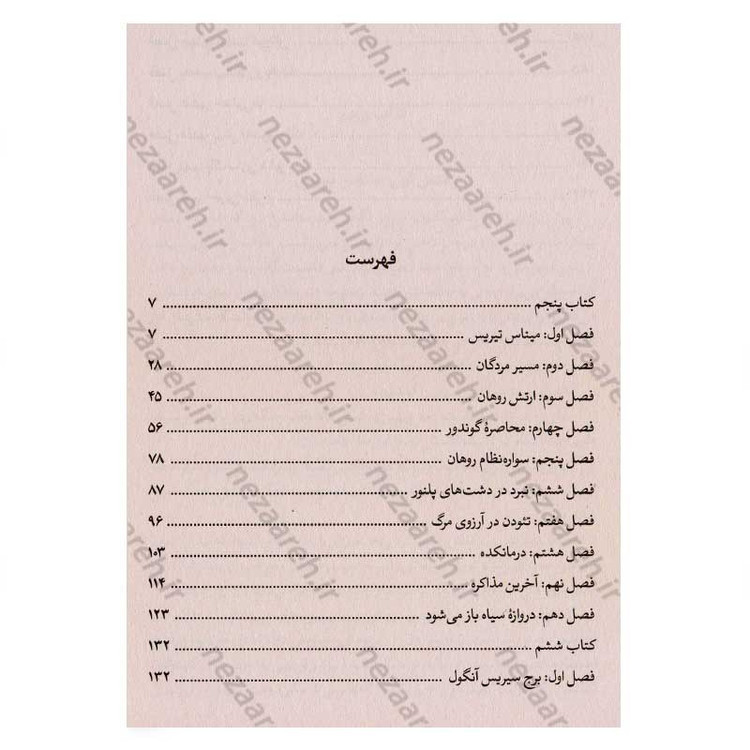 فهرست
کتاب پنجم ........ ۷
فصل اول: میناس تیریس ........ ۷
فصل دوم: مسیر مردگان ........ ۲۸
فصل سوم: ارتش روهان ........ ۴۵
فصل چهارم: محاصرهٔ گوندور ........ ۵۶
فصل پنجم: سواره‌نظام روهان ........ ۷۸
فصل ششم: نبرد در دشت‌های پلنور ........ ۸۷
فصل هفتم: تئودن در آرزوی مرگ ........ ۹۶
فصل هشتم: درمانکده ........ ۱۰۳
فصل نهم: آخرین مذاکره ........ ۱۱۴
فصل دهم: دروازهٔ سیاه باز می‌شود ........ ۱۲۳
کتاب ششم ........ ۱۳۲
فصل اول: برج سیریس آنگول ........ ۱۳۲
nezaareh.ir